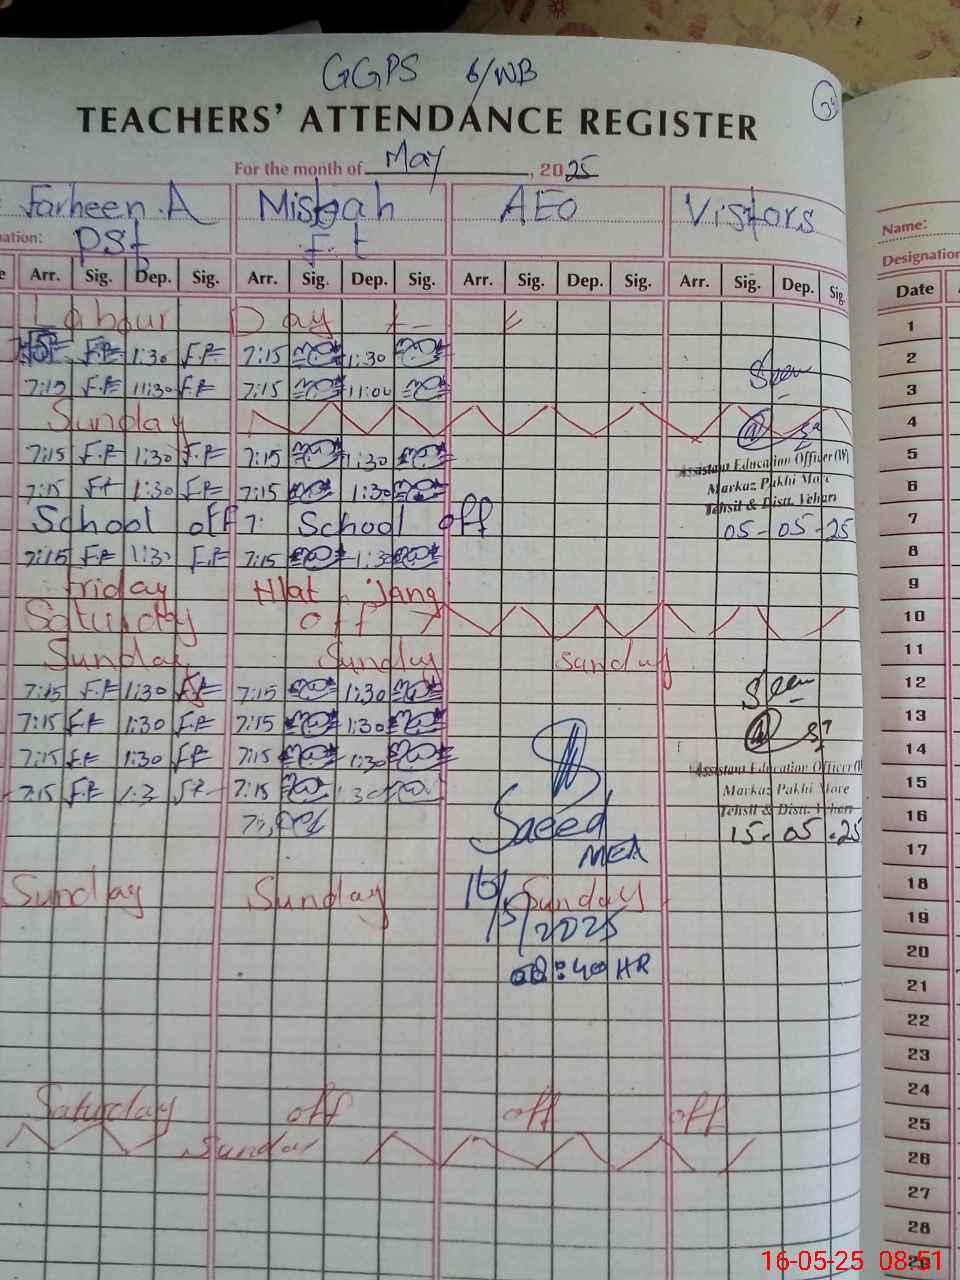 GGPS 6/WB
TEACHERS' ATTENDANCE REGISTER
For the month of May, 2025
Farheen.A Misbah AEO Visitors
ation: PST F.t
e Arr. Sig. Dep. Sig. Arr. Sig. Dep. Sig. Arr. Sig. Dep. Sig. Arr. Sig. Dep. Sig.
Labour Day
F.R 1:30 F.R 7:15 1:30
7:15 F.R 11:30 F.R 7:15 11:00
Seen
Sunday
7:15 F.R 1:30 F.R 7:15 1:30
Assistant Education Officer (W)
7:15 F.R 1:30 F.R 7:15 1:30
Markaz Pakhi More
Tehsil & Distt. Vehari
School off 7: School off
05-05-25
7:15 F.R 1:30 F.R 7:15 1:30
Friday Hlat Jang
Saturday off
Sunday Sunday Sunday
7:15 F.R 1:30 F.R 7:15 1:30
Seen
7:15 F.R 1:30 F.R 7:15 1:30
7:15 F.R 1:30 F.R 7:15 1:30
Assistant Education Officer (W
7:15 F.R 1:3 F.R 7:15 :3
Markaz Pakhi More
Tehsil & Distt. Vehari
15-05-25
Saeed
MEA
Sunday Sunday Sunday
16/5/2025
08:40 HR
Saturday off off off
Sunday
Name:
Designation
Date
1
2
3
4
5
6
7
8
9
10
11
12
13
14
15
16
17
18
19
20
21
22
23
24
25
26
27
28
29
16-05-25 08:51